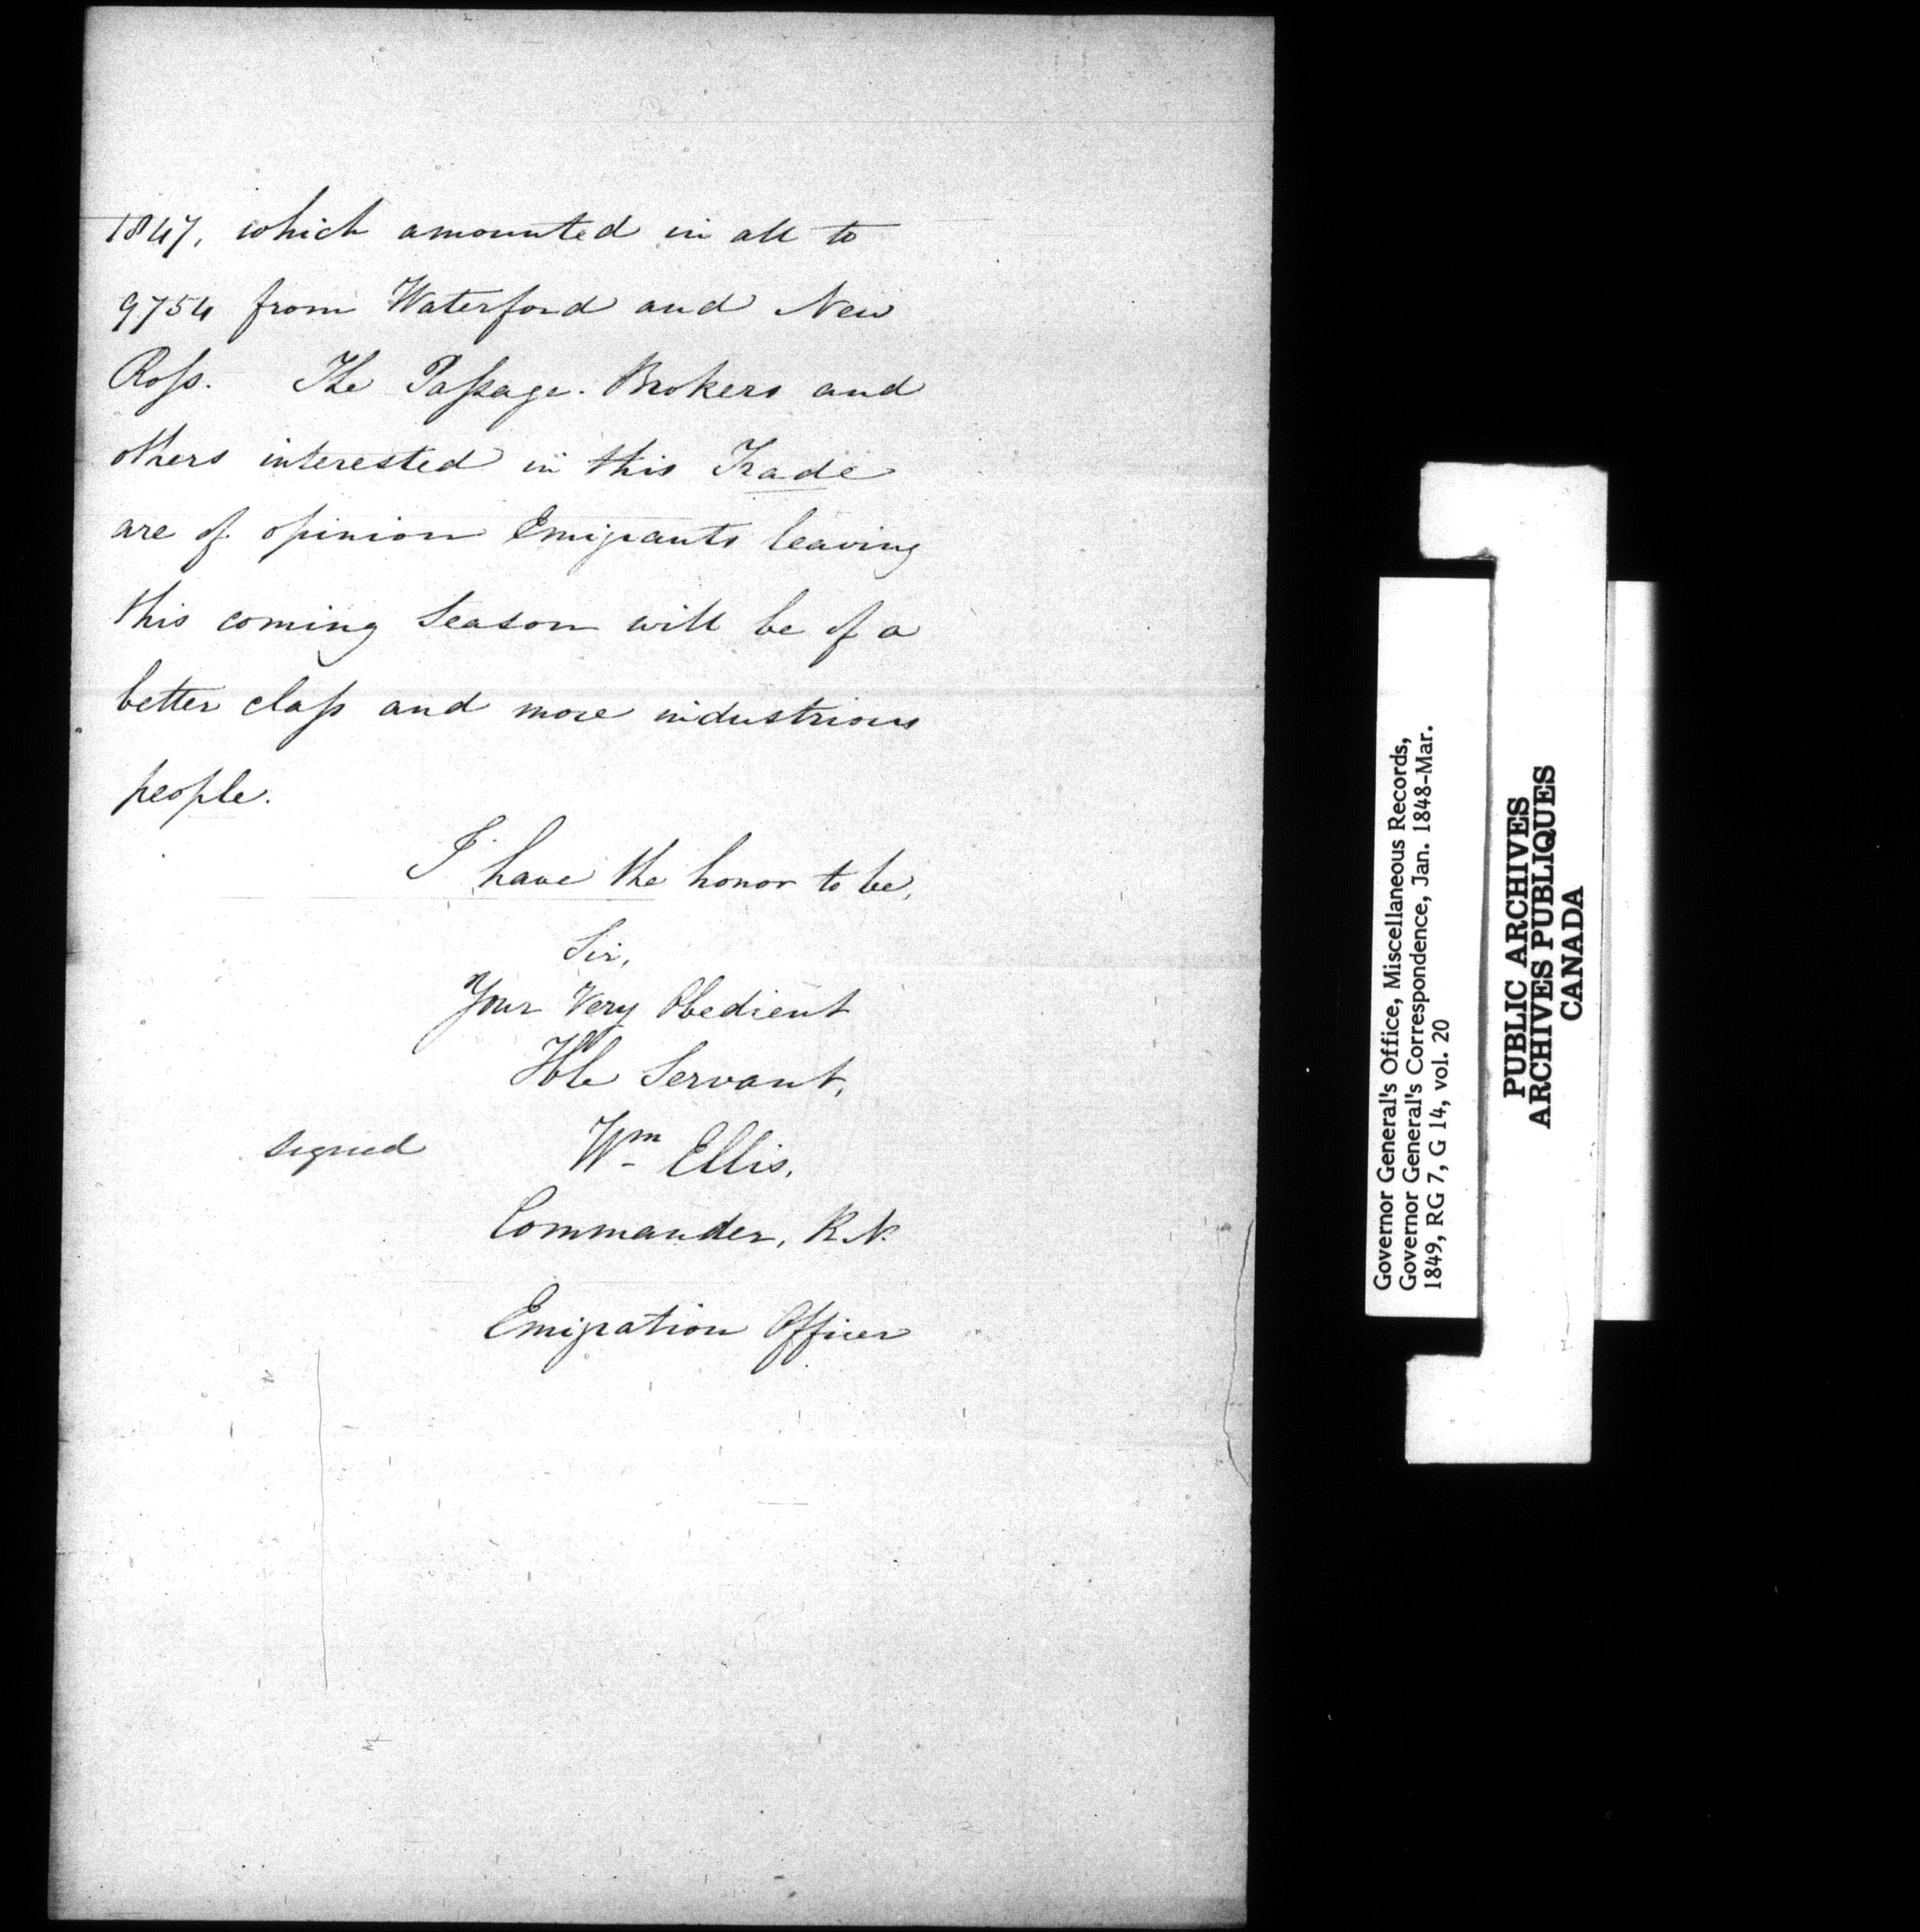 1847, which amounted in all to
9754 from Waterford and New
Roſs. The Paſsage. Brokers and
others interested in this Trade
are of opinion Emigrants leaving
this coming Season will be of a
better claſs and more industrious
people.
I have the honor to be,
Sir,
Your Very Obedient
Hble Servant,
signed Wm Ellis,
Commander, R.N.
Emigration Officer
Governor General's Office, Miscellaneous Records,
Governor General's Correspondence, Jan. 1848-Mar.
1849, RG 7, G 14, vol. 20
PUBLIC ARCHIVES
ARCHIVES PUBLIQUES
CANADA